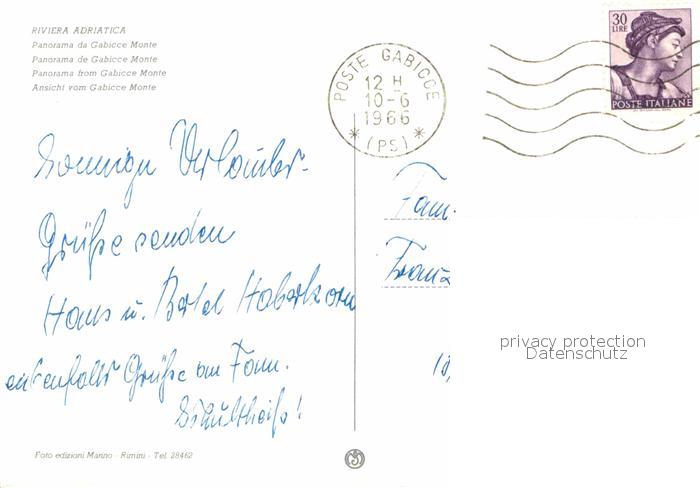 RIVIERA ADRIATICA
Panorama da Gabicce Monte
Panorama de Gabicce Monte
Panorama from Gabicce Monte
Ansicht vom Gabicce Monte
30
LIRE
POSTE ITALIANE
POSTE GABICCE
12 H
10-6
1966
* (PS) *
Sonnige Urlauber-
Grüße senden
Hans u. Bertel Haberkorn
ebenfalls Grüße an Fam.
Schultheiß!
Fam.
Franz
privacy protection
Datenschutz
Foto edizioni Manno - Rimini - Tel. 28462